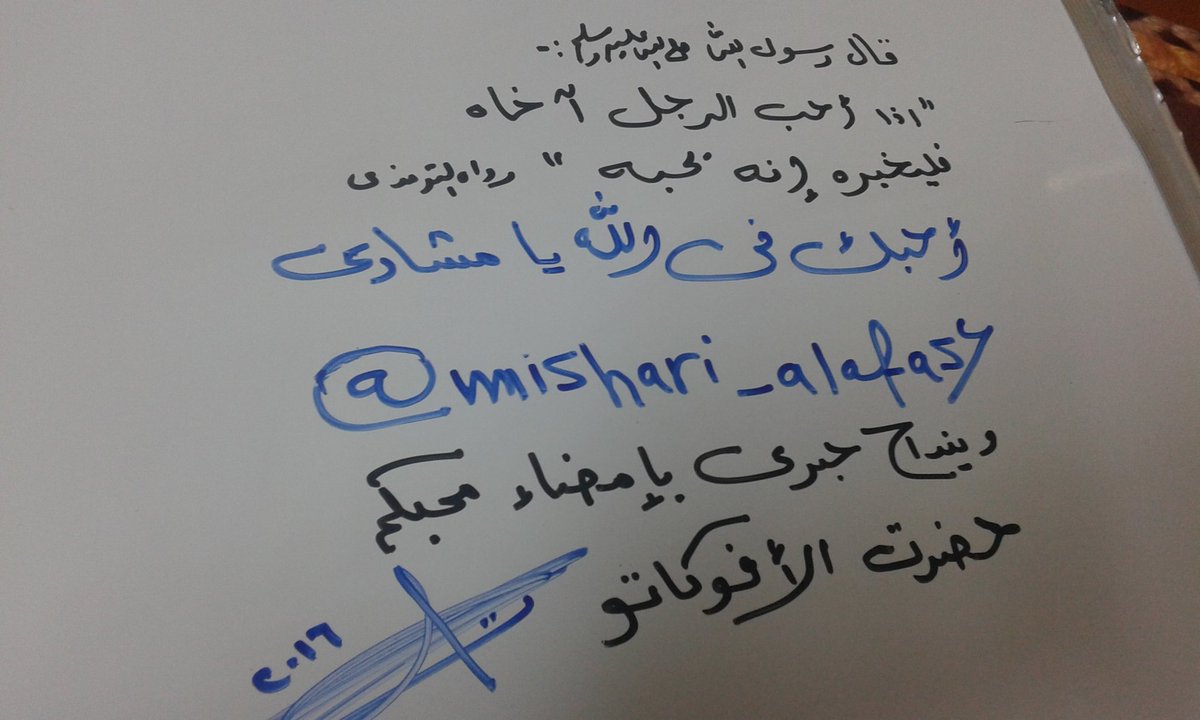 قال رسول الله صلى الله عليه وسلم :-
"اذا أحب الرجل أخاه
فليخبره إنه يحبه" رواه الترمذى
أحبك فى الله يا مشارى
@mishari_alafasy
حبرى بإمضاء محبكم
حضرت الأفوكاتو
٢٠١٦